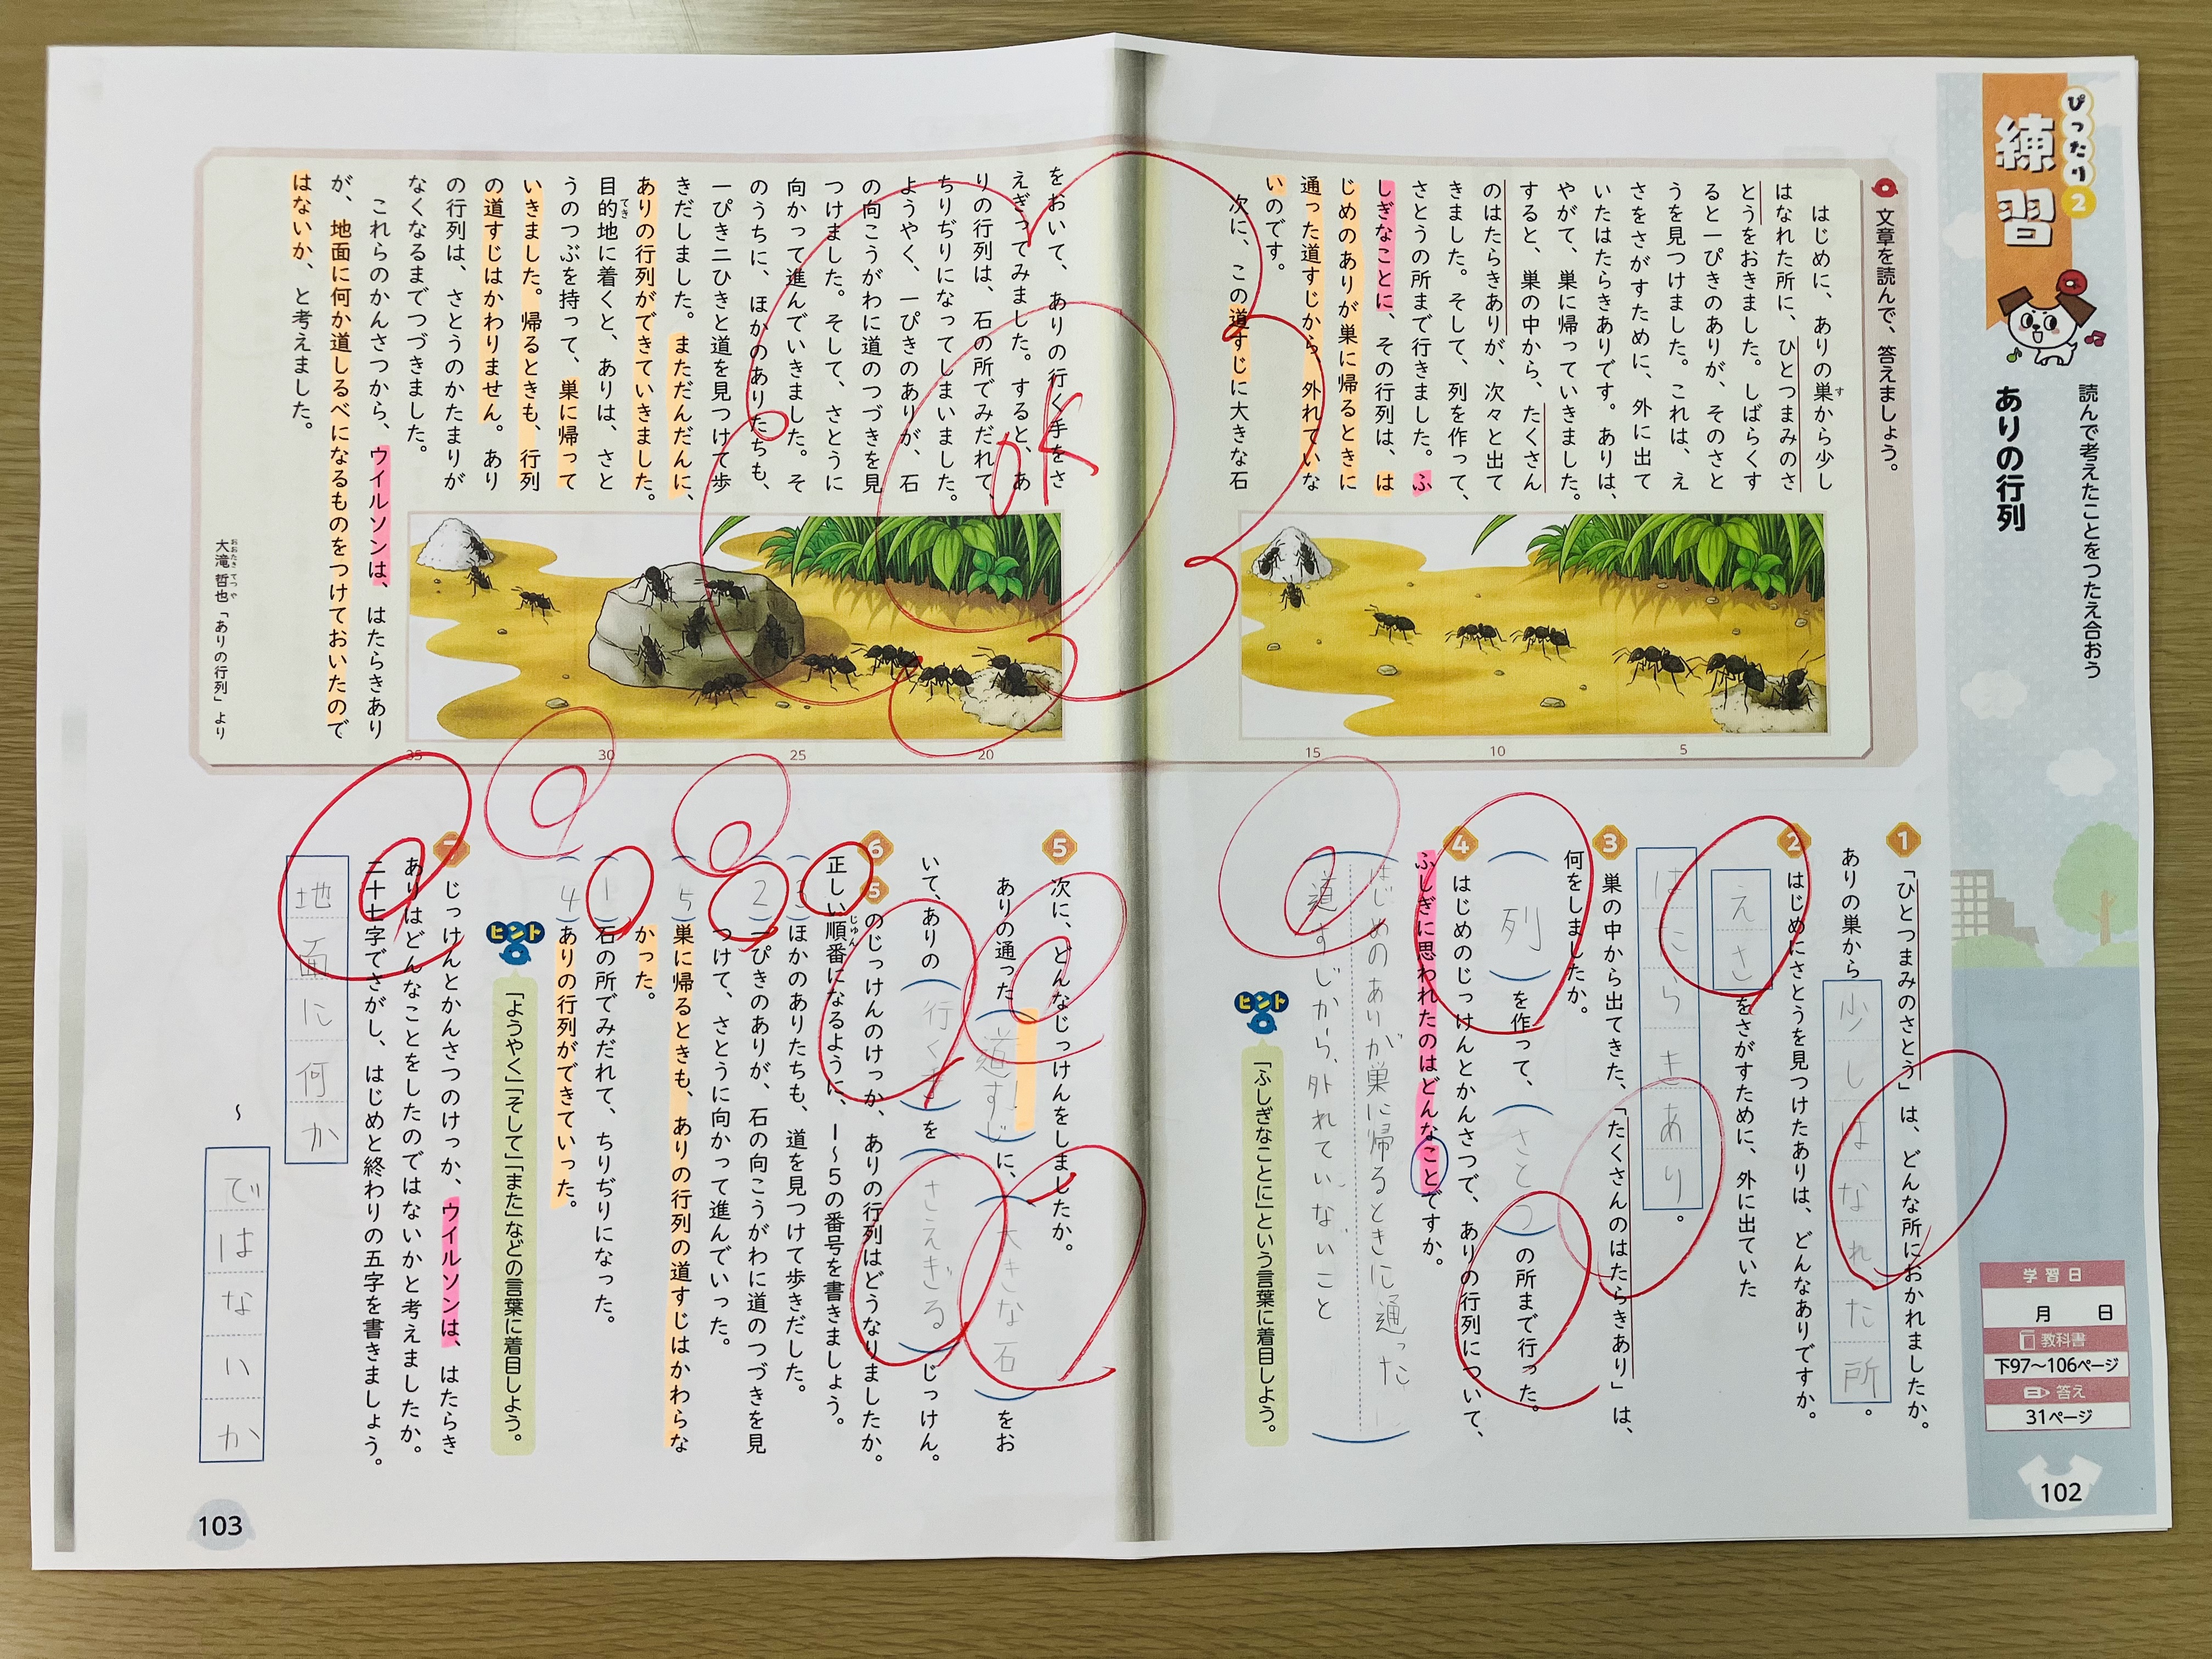 ぴったり2
練習
読んで考えたことをつたえ合おう
ありの行列
学習日
月 日
教科書
下97〜106ページ
答え
31ページ
102
文章を読んで、答えましょう。
はじめに、ありの巣から少し
はなれた所に、ひとつまみのさ
とうをおきました。しばらくす
ると一ぴきのありが、そのさと
うを見つけました。これは、え
さをさがすために、外に出て
いたはたらきありです。ありは、
やがて、巣に帰っていきました。
すると、巣の中から、たくさん
のはたらきありが、次々と出て
きました。そして、列を作って、
さとうの所まで行きました。ふ
しぎなことに、その行列は、は
じめのありが巣に帰るときに
通った道すじから、外れていな
いのです。
次に、この道すじに大きな石
をおいて、ありの行く手をさ
えぎってみました。すると、あ
りの行列は、石の所でみだれて、
ちりぢりになってしまいました。
ようやく、一ぴきのありが、石
の向こうがわに道のつづきを見
つけました。そして、さとうに
向かって進んでいきました。そ
のうちに、ほかのありたちも、
一ぴき二ひきと道を見つけて歩
きだしました。まただんだんに、
ありの行列ができていきました。
目的地に着くと、ありは、さと
うのつぶを持って、巣に帰って
いきました。帰るときも、行列
の道すじはかわりません。あり
の行列は、さとうのかたまりが
なくなるまでつづきました。
これらのかんさつから、ウイルソンは、はたらきあり
が、地面に何か道しるべになるものをつけておいたので
はないか、と考えました。
大滝 哲也「ありの行列」より
す
てき
おおたき てつや
OK
5
10
15
20
25
30
35
1 「ひとつまみのさとう」は、どんな所におかれましたか。
ありの巣から 少しはなれた所 。
2 はじめにさとうを見つけたありは、どんなありですか。
えさ をさがすために、外に出ていた
はたらきあり 。
3 巣の中から出てきた、「たくさんのはたらきあり」は、
何をしましたか。
(列)を作って、(さとう)の所まで行った。
4 はじめのじっけんとかんさつで、ありの行列について、
ふしぎに思われたのはどんなことですか。
はじめのありが巣に帰るときに通った
道すじから、外れていないこと
ヒント
「ふしぎなことに」という言葉に着目しよう。
5 次に、どんなじっけんをしましたか。
ありの通った(道すじ)に、(大きな石)をお
いて、ありの(行く手)を(さえぎる)じっけん。
6 5のじっけんのけっか、ありの行列はどうなりましたか。
正しい順番になるように、1〜5の番号を書きましょう。
じゅん
(3)ほかのありたちも、道を見つけて歩きだした。
(2)一ぴきのありが、石の向こうがわに道のつづきを見
つけて、さとうに向かって進んでいった。
(5)巣に帰るときも、ありの行列の道すじはかわらな
かった。
(1)石の所でみだれて、ちりぢりになった。
(4)ありの行列ができていった。
ヒント
「ようやく」「そして」「また」などの言葉に着目しよう。
7 じっけんとかんさつのけっか、ウイルソンは、はたらき
ありはどんなことをしたのではないかと考えましたか。
二十七字でさがし、はじめと終わりの五字を書きましょう。
地面に何か
〜
ではないか
103